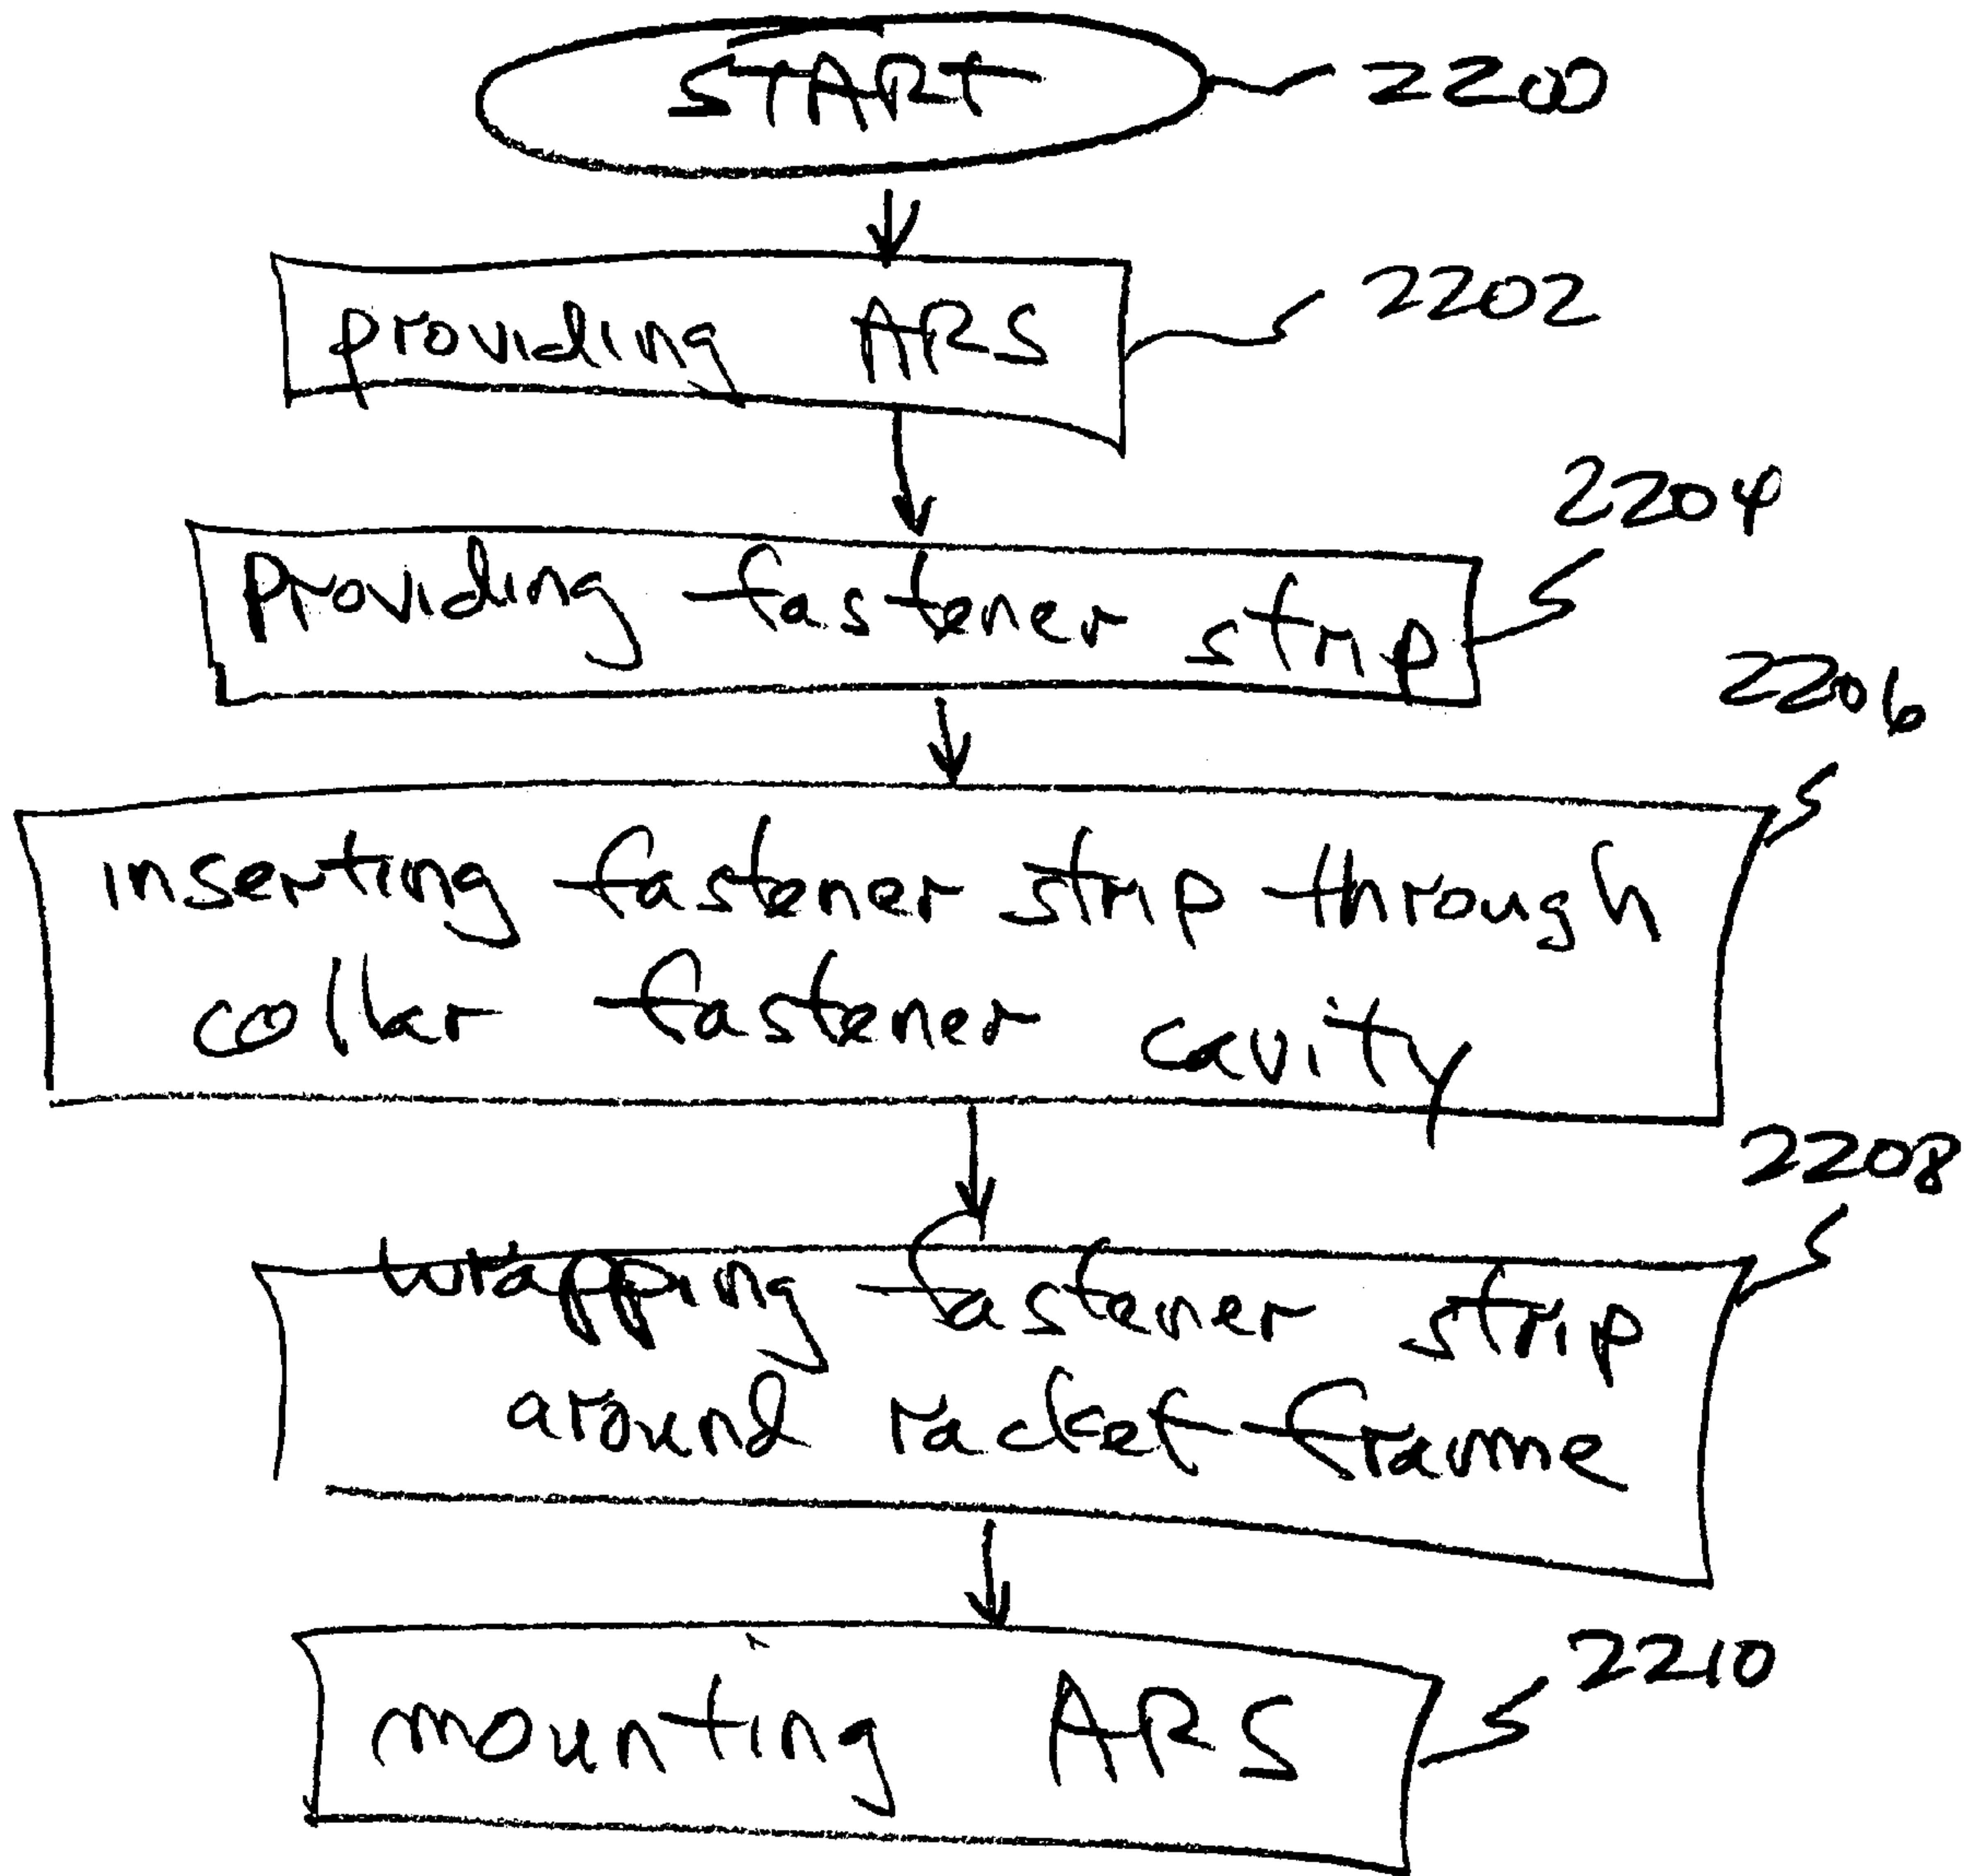 START 2200
providing ARS 2202
2204
Providing fastener strip
2206
inserting fastener strip through
collar fastener cavity
2208
wrapping fastener strip
around racket frame
2210
mounting ARS